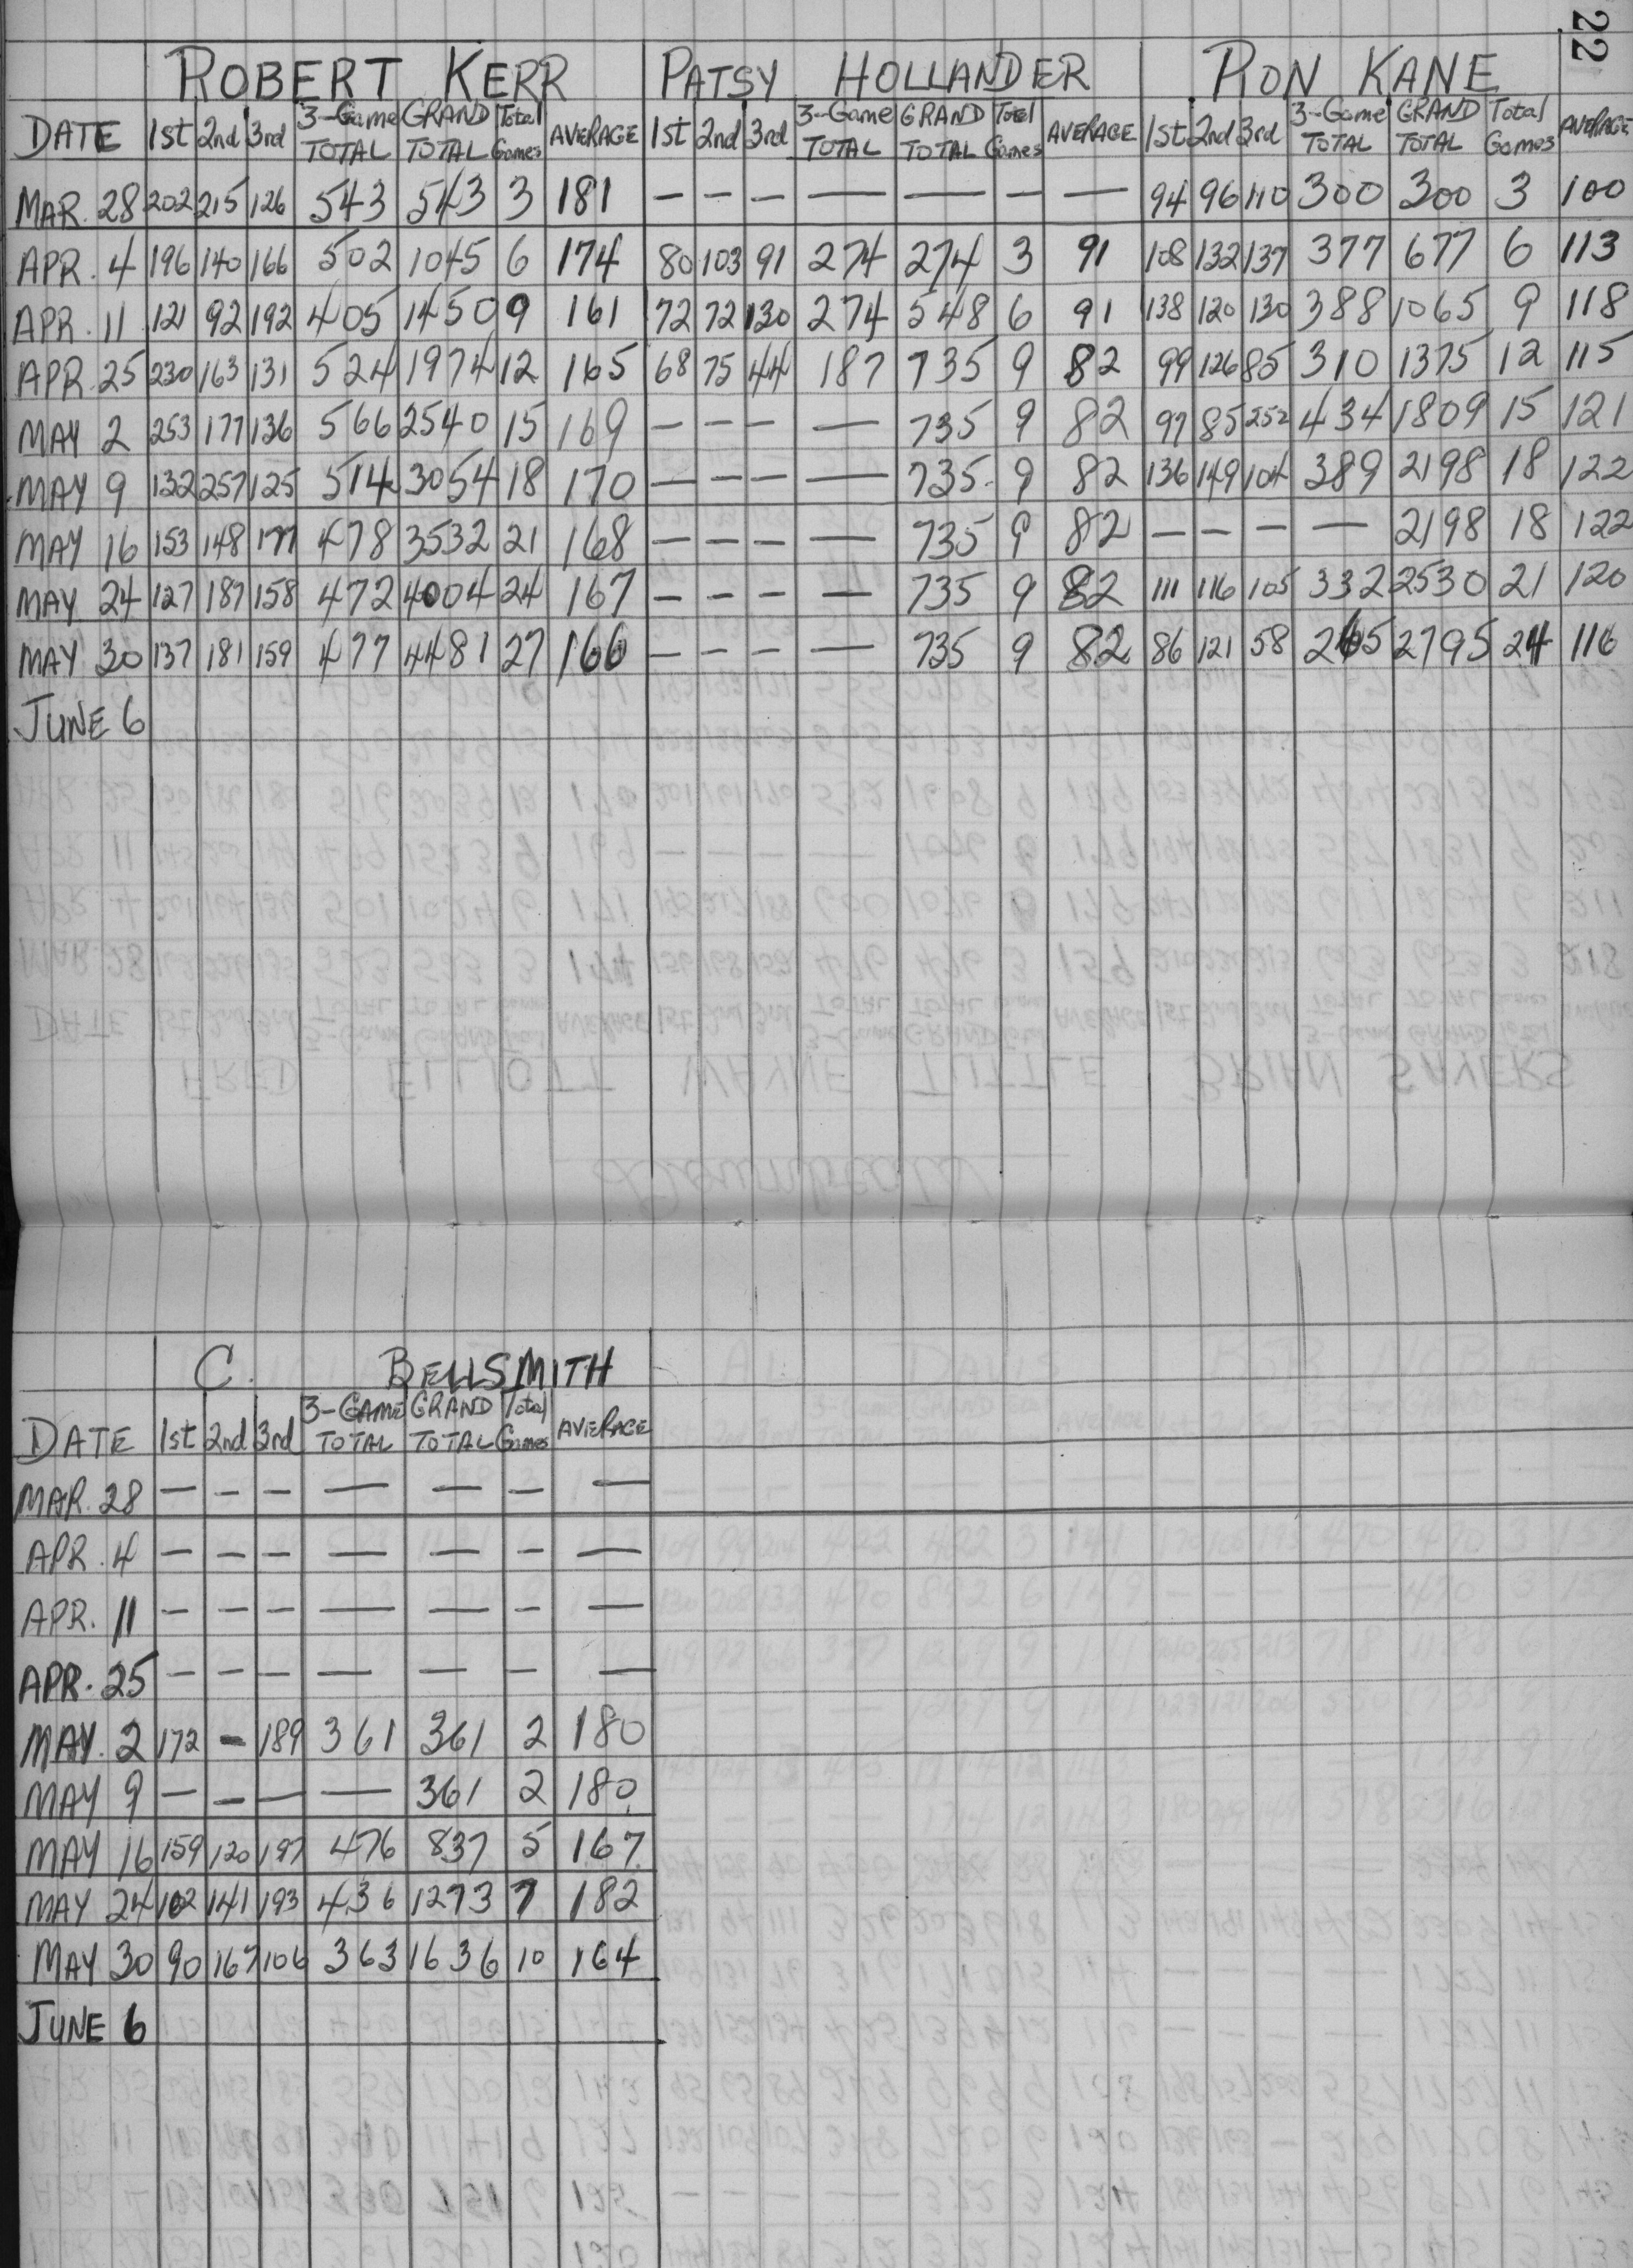 22
ROBERT KERR PATSY HOLLANDER RON KANE
DATE 1st 2nd 3rd 3-Game TOTAL GRAND TOTAL Total Games AVERAGE 1st 2nd 3rd 3-Game TOTAL GRAND TOTAL Total Games AVERAGE 1st 2nd 3rd 3-Game TOTAL GRAND TOTAL Total Games AVERAGE
MAR. 28 202 215 126 543 543 3 181 — — — — — — — 94 96 110 300 300 3 100
APR. 4 196 140 166 502 1045 6 174 80 103 91 274 274 3 91 108 132 137 377 677 6 113
APR. 11 121 92 192 405 1450 9 161 72 72 130 274 548 6 91 138 120 130 388 1065 9 118
APR. 25 230 163 131 524 1974 12 165 68 75 44 187 735 9 82 99 126 85 310 1375 12 115
MAY 2 253 177 136 566 2540 15 169 — — — — 735 9 82 97 85 252 434 1809 15 121
MAY 9 132 257 125 514 3054 18 170 — — — — 735 9 82 136 149 104 389 2198 18 122
MAY 16 153 148 177 478 3532 21 168 — — — — 735 9 82 — — — — 2198 18 122
MAY 24 127 187 158 472 4004 24 167 — — — — 735 9 82 111 116 105 332 2530 21 120
MAY 30 137 181 159 477 4481 27 166 — — — — 735 9 82 86 121 58 265 2795 24 116
JUNE 6
C. BELLSMITH
DATE 1st 2nd 3rd 3-GAME TOTAL GRAND TOTAL Total Games AVERAGE
MAR. 28 — — — — — — —
APR. 4 — — — — — — —
APR. 11 — — — — — — —
APR. 25 — — — — — — —
MAY. 2 172 — 189 361 361 2 180
MAY 9 — — — — 361 2 180
MAY 16 159 120 197 476 837 5 167
MAY 24 102 141 193 436 1273 7 182
MAY 30 90 167 106 363 1636 10 164
JUNE 6